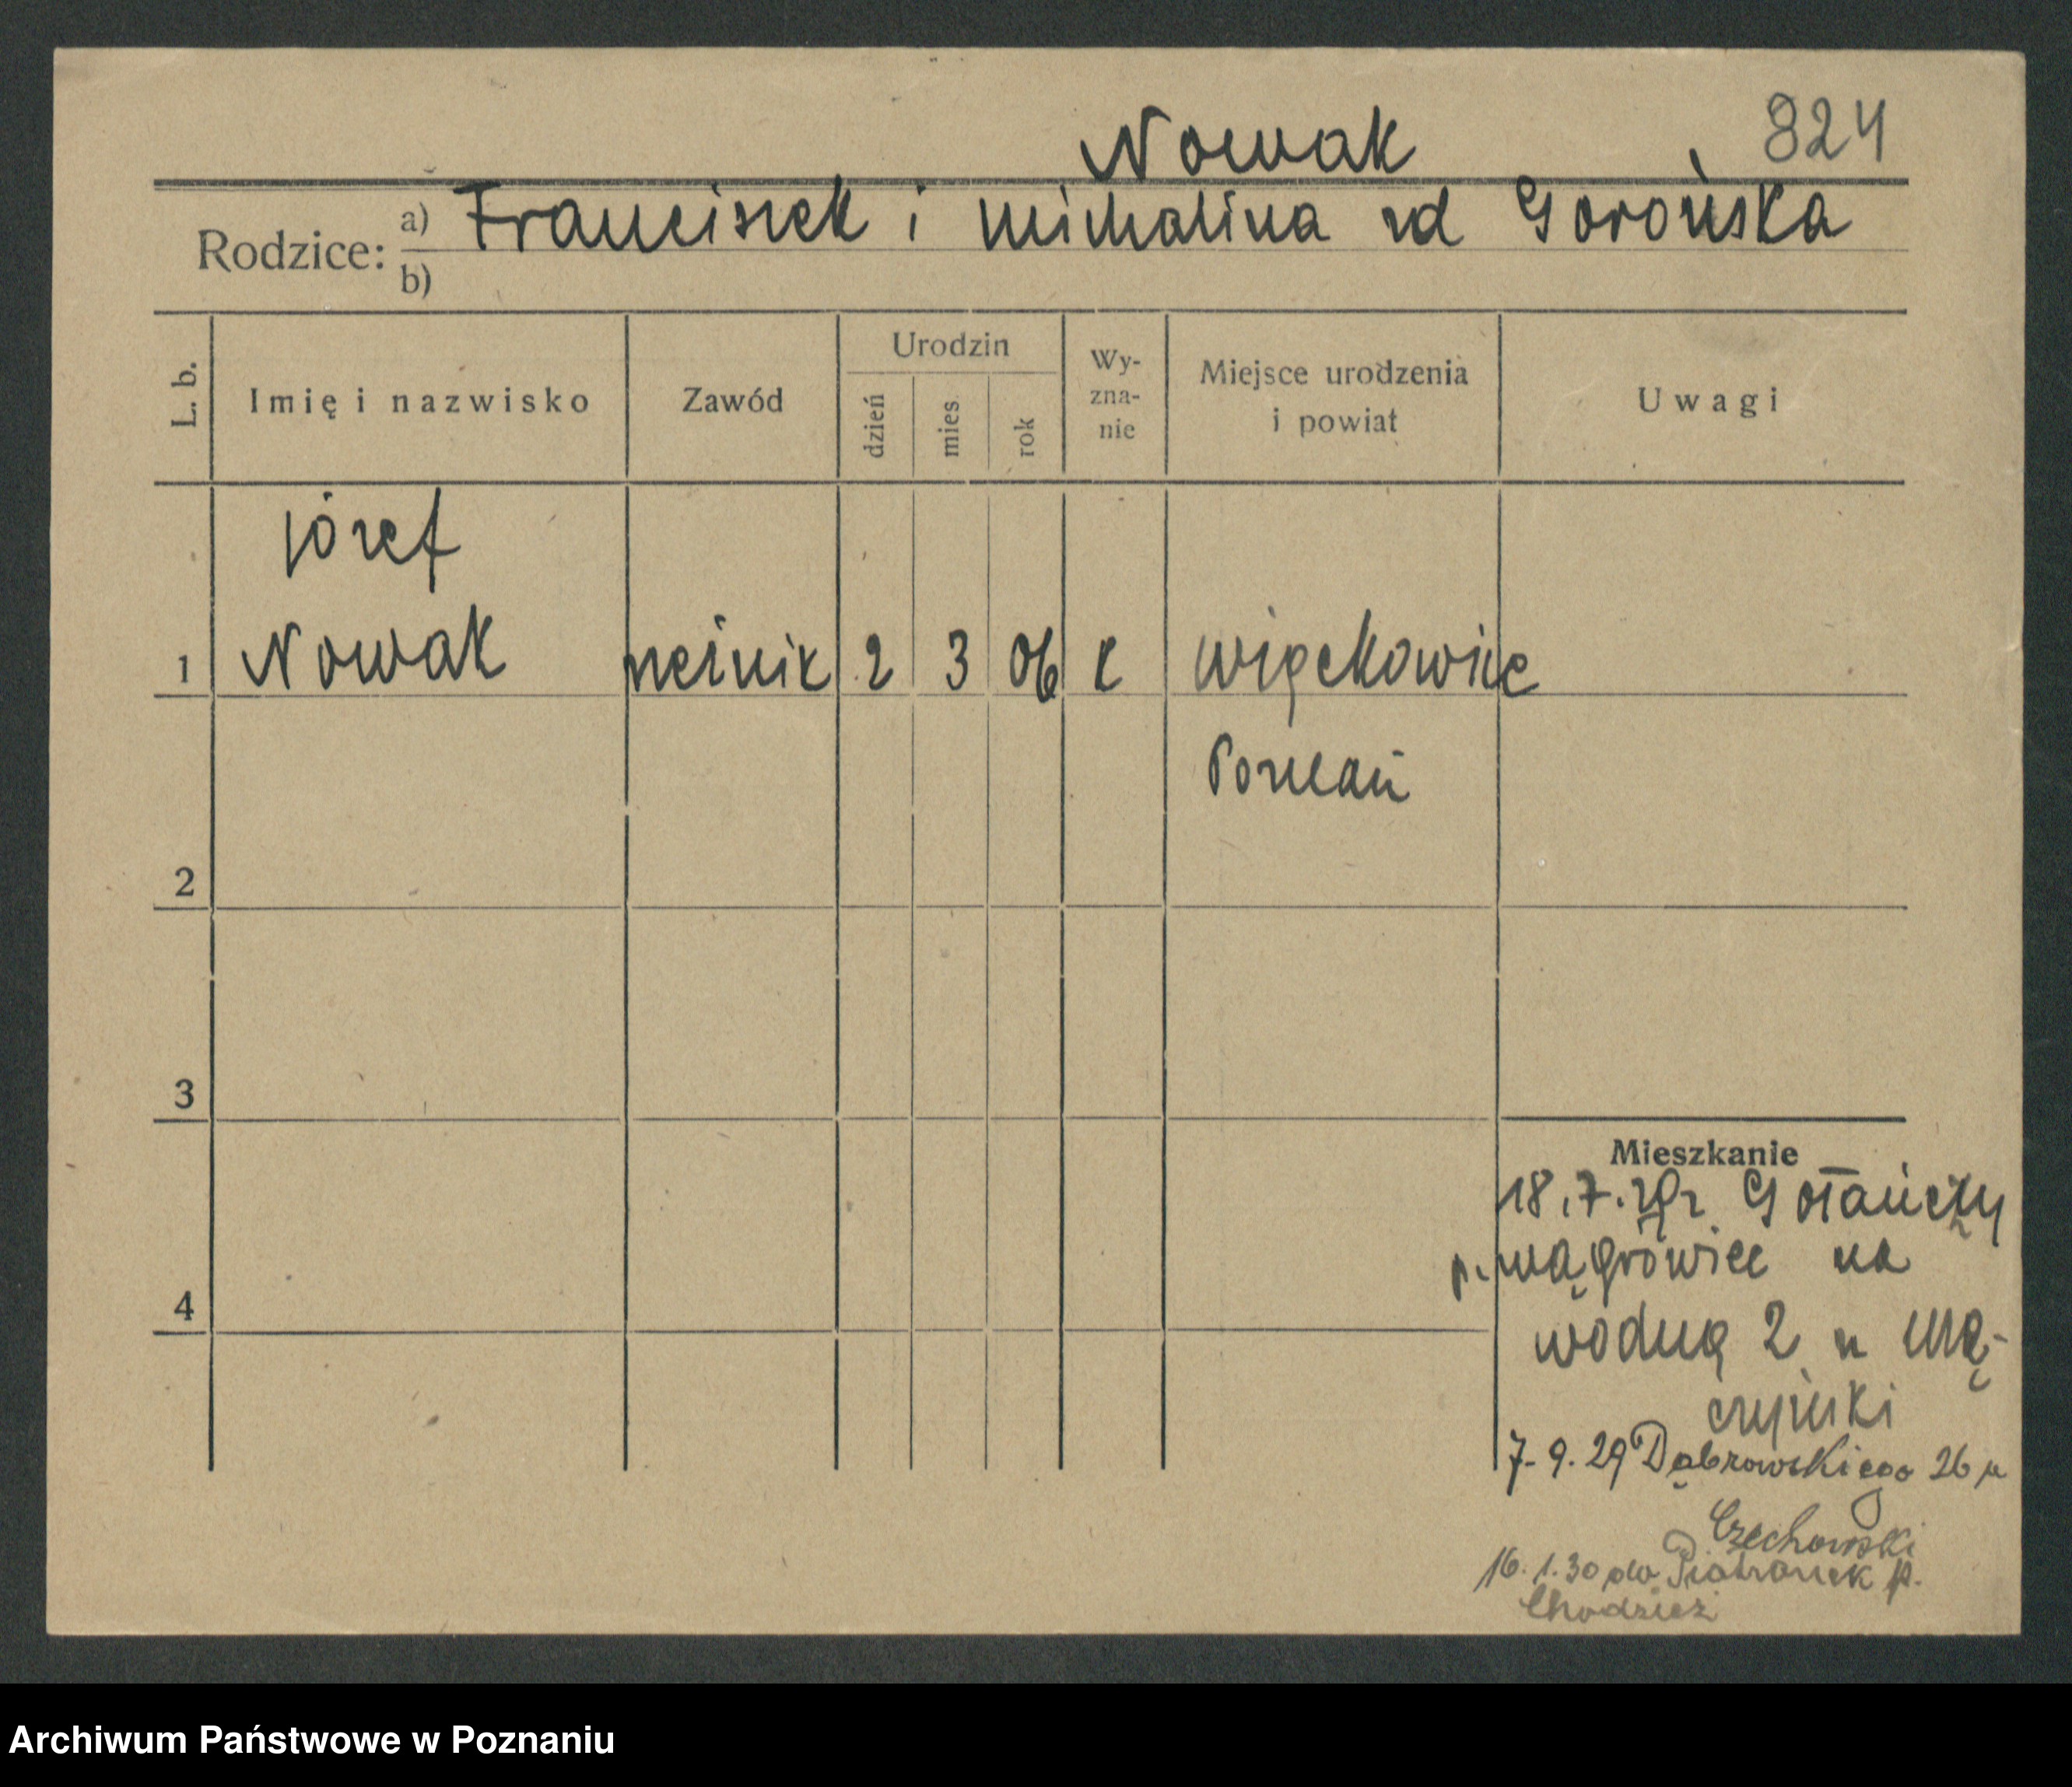 Nowak 824
Rodzice: a) Franciszek i Michalina zd Goronska
b)
L. b.
Imię i nazwisko
Zawód
Urodzin
dzień
mies.
rok
Wy-
zna-
nie
Miejsce urodzenia
i powiat
Uwagi
Józef
1 Nowak rzeźnik 2 3 06 k Więckowice
Poznań
2
3
Mieszkanie
18.7.29 z Gołańczy
p. Wągrówiec na
4
Wodną 2 u Mą-
czyński
7.9.29 Dąbrowskiego 26 u
Czechowski
16.1.30 do Piotronek p.
Chodzież
Archiwum Państwowe w Poznaniu